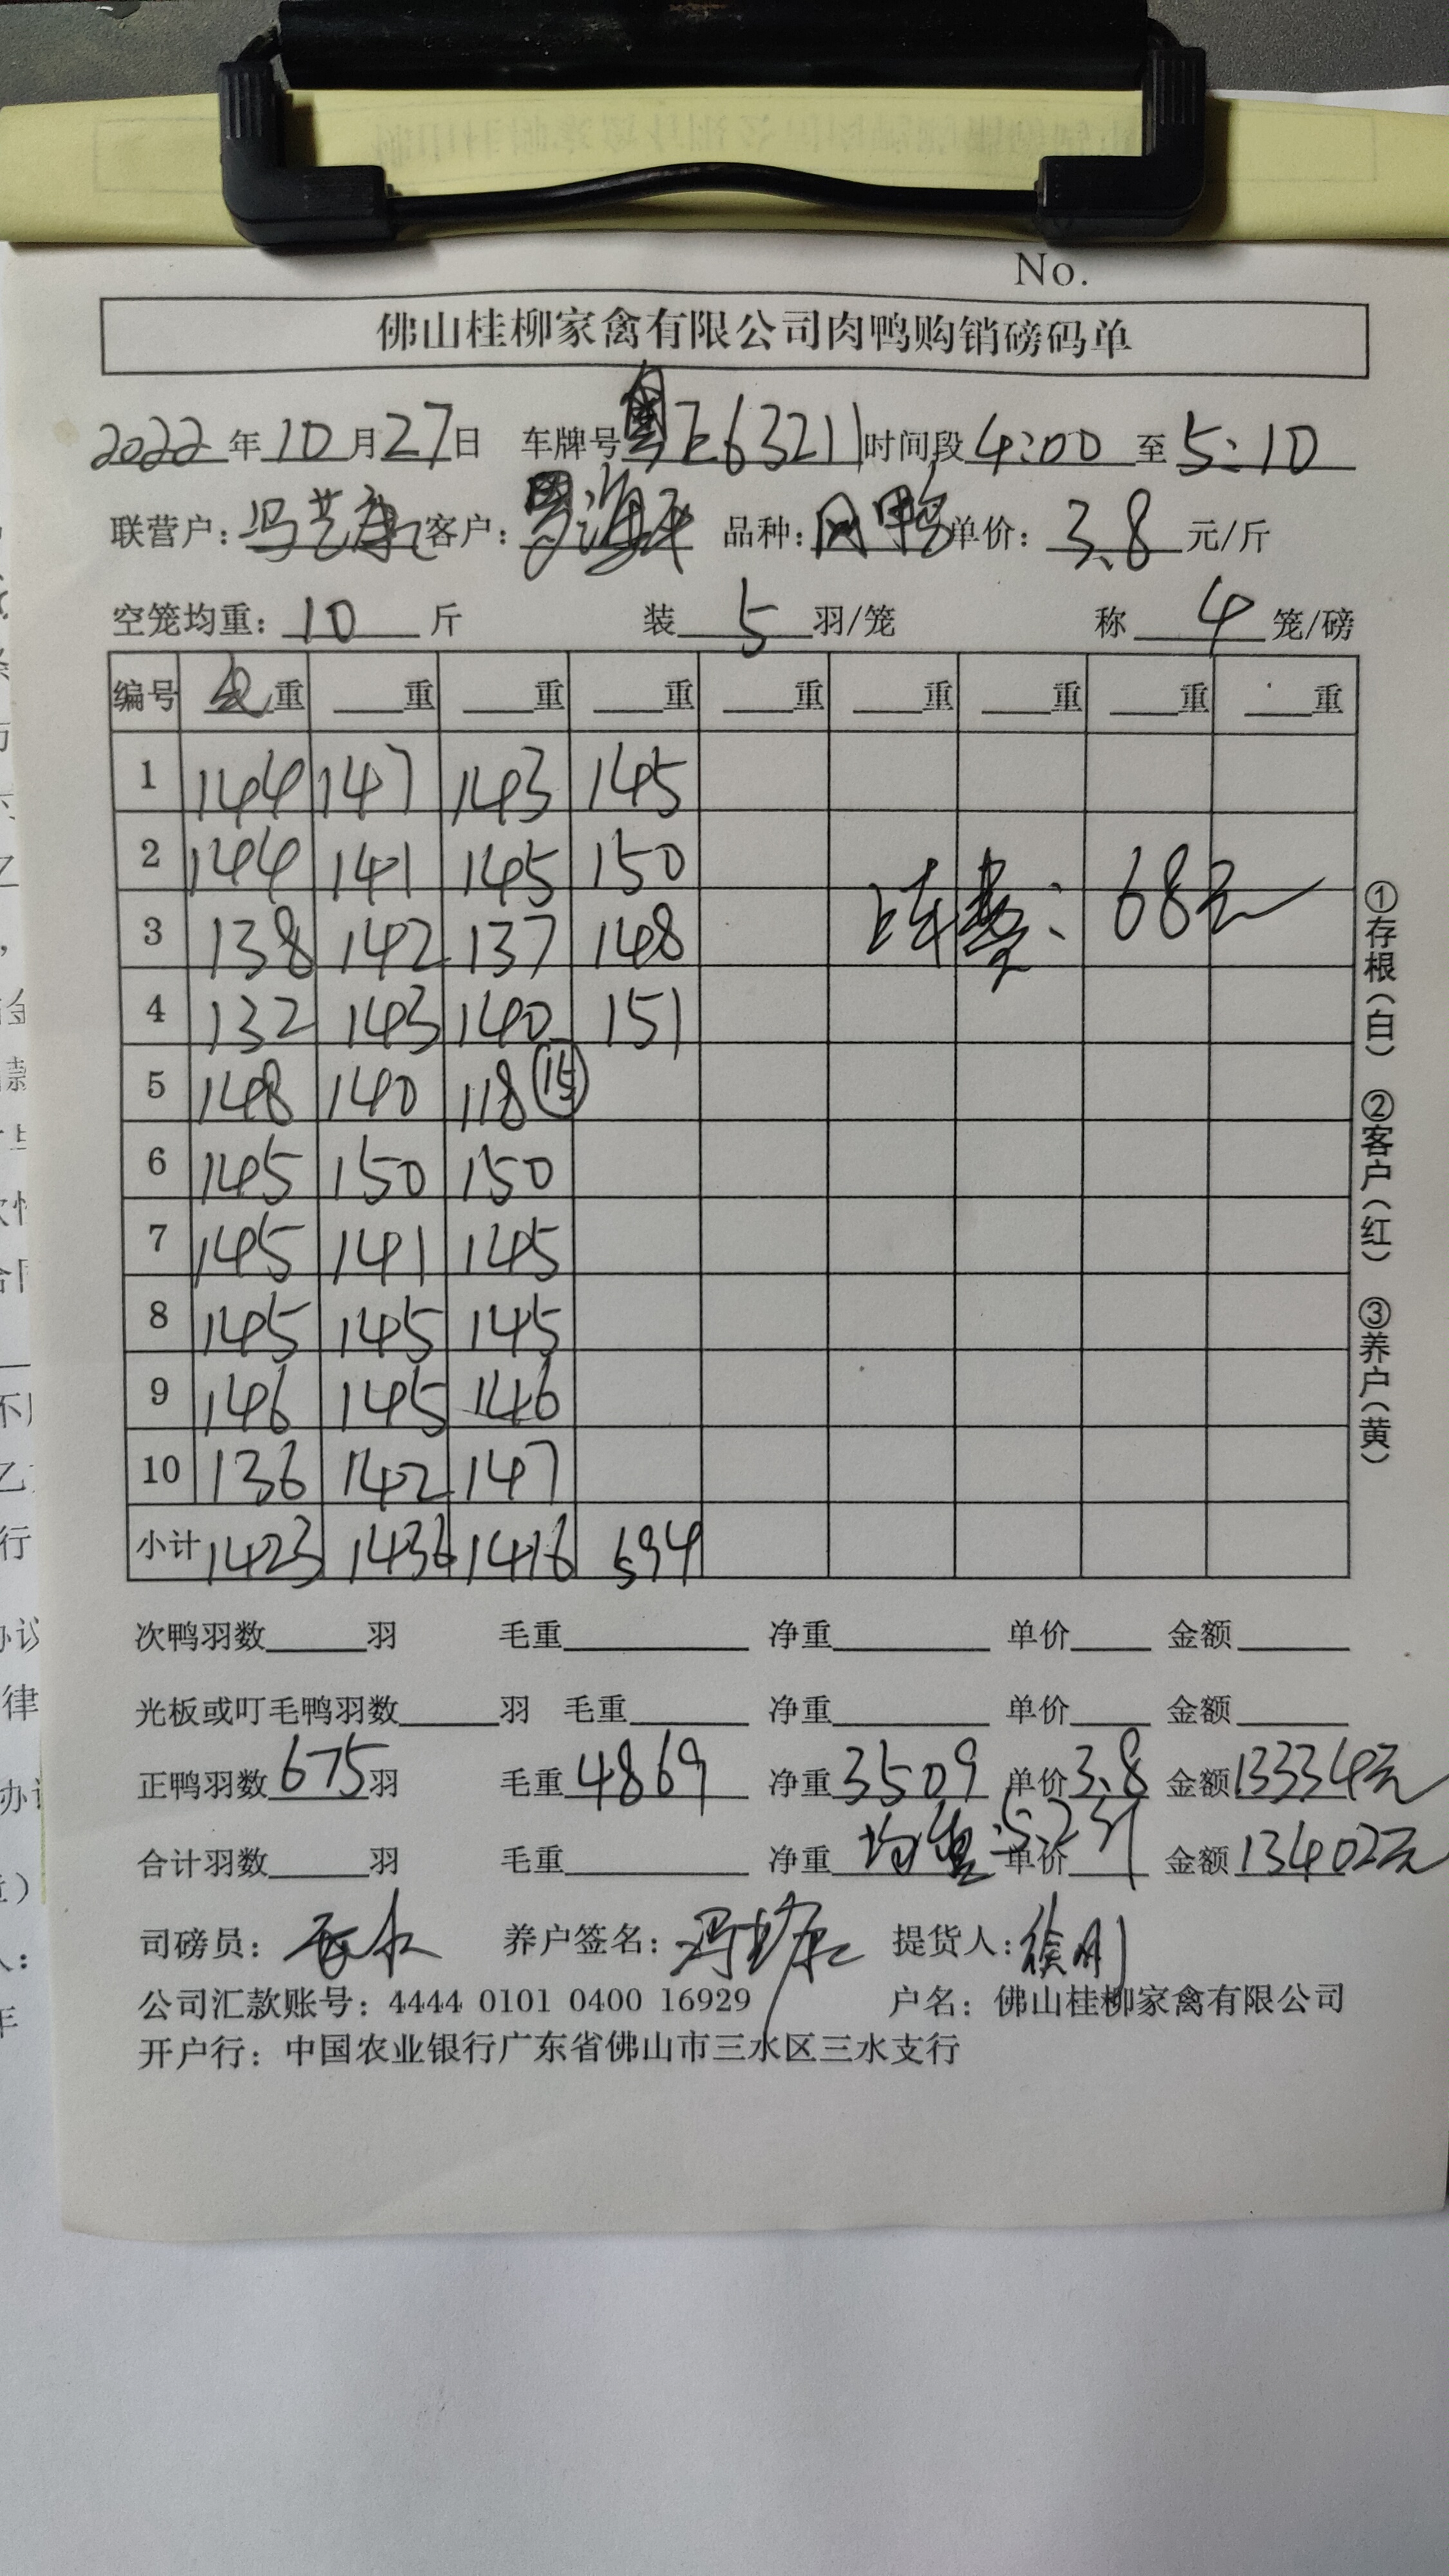 No.
佛山桂柳家禽有限公司肉鸭购销磅码单
2022年10月27日 车牌号粤E63211时间段4:00至5:10
联营户:冯艺康 客户:罗海平 品种: 单价:3.8元/斤
空笼均重:10斤 装5羽/笼 称4笼/磅
编号 毛重 重 重 重 重 重 重 重 重
1 144 147 143 145
2 144 141 145 150
上车费:68元
3 138 142 137 148
4 132 143 140 151
5 148 140 118 15
6 145 150 150
7 145 141 145
8 145 145 145
9 146 145 146
10 136 142 147
小计 1423 1436 1416 594
①存根(白) ②客户(红) ③养户(黄)
次鸭羽数 羽 毛重 净重 单价 金额
光板或叮毛鸭羽数 羽 毛重 净重 单价 金额
正鸭羽数675羽 毛重4869 净重3509 单价3.8 金额13334元
合计羽数 羽 毛重 净重 均重: 单价 金额13402元
司磅员: 养户签名: 提货人:徐刚
公司汇款账号:4444 0101 0400 16929 户名:佛山桂柳家禽有限公司
开户行:中国农业银行广东省佛山市三水区三水支行